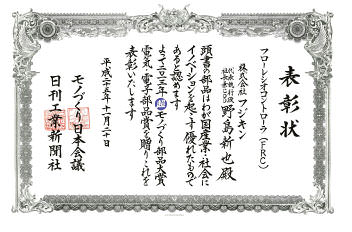 表彰状
フローレシオコントローラ（FRC）
株式会社フジキン
野島新也殿
頭書の部品はわが国産業・社会に
イノベーションを起こす優れたもので
あると認めます
よって二〇一三年超モノづくり部品大賞
電気・電子部品賞を贈りこれを
表彰いたします
平成二十五年十一月二十日
モノづくり日本会議
日刊工業新聞社